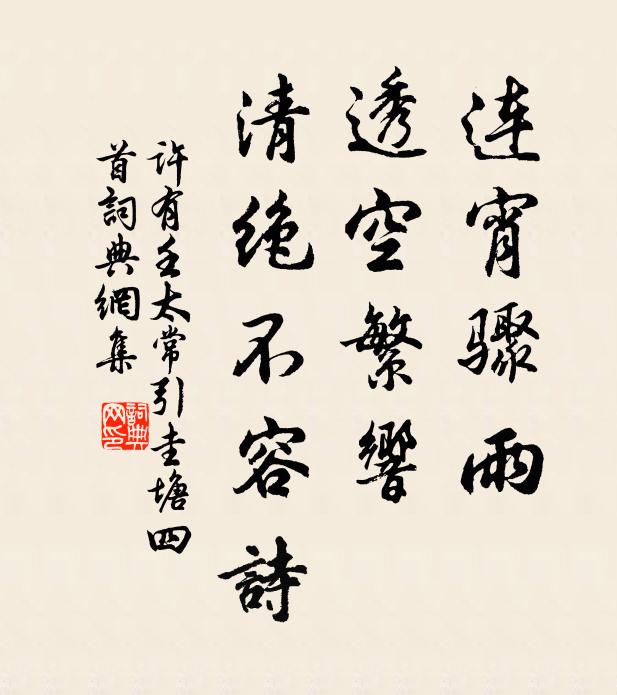 连宵骤雨
透空繁響
清绝不容詩
許有壬太常引圭塘四
首詞典網集
詞典网印